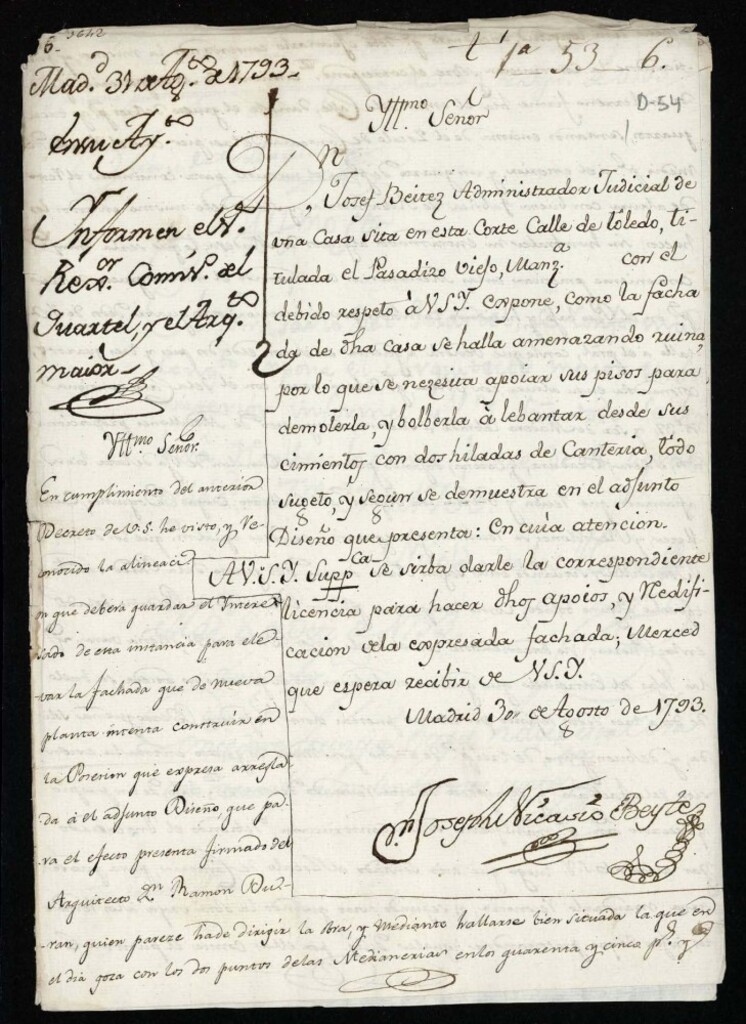 6.
3642
t.º 1ª 53 6.
D-54
Mad.d 31 de Ag.to de 1793.
en su Ay.to
Informen el S.r
Rex.or Comis.o del
Quartel, y el Arq.to
maior
Yll.mo Señor
Dn Josef Beitez Administrador Judicial de
vna Casa sita en esta Corte Calle de Toledo, ti-
tulada el Pasadizo Viejo, Manz.a con el
debido respeto à VSY. expone, como la facha
da de dha casa se halla amenazando ruina,
por lo que se nezesita apoiar sus pisos para
demolerla, y bolberla à lebantar desde sus
cimientos con dos hiladas de Canteria, todo
sugeto, y segun se demuestra en el adjunto
Diseño que presenta: En cuia atencion.
A V.S.Y. Supp.ca se sirba darle la correspondiente
licencia para hacer dhos apoios, y Redifi-
cacion de la expresada fachada; Merced
que espera recibir de VSY.
Madrid 30 de Agosto de 1793.
Dn Joseph Nicasio Beytez
Yll.mo Señor.
En cumplimiento del anterior
Decreto de V.S. he visto, y Re-
conocido la alineaci
on que deberá guardar el Intere
sado de esta instancia para ele-
var la fachada que de nueva
planta intenta construir en
la Posesion que expresa arregla
da à el adjunto Diseño, que pa-
ra el efecto presenta firmado del
Arquitecto Dn Ramon Du-
ran, quien pareze ha de dirigir la obra, y Mediante hallarse bien situada la que en
el dia goza con los dos puntos de las Medianerias en los quarenta y cinco p.s y